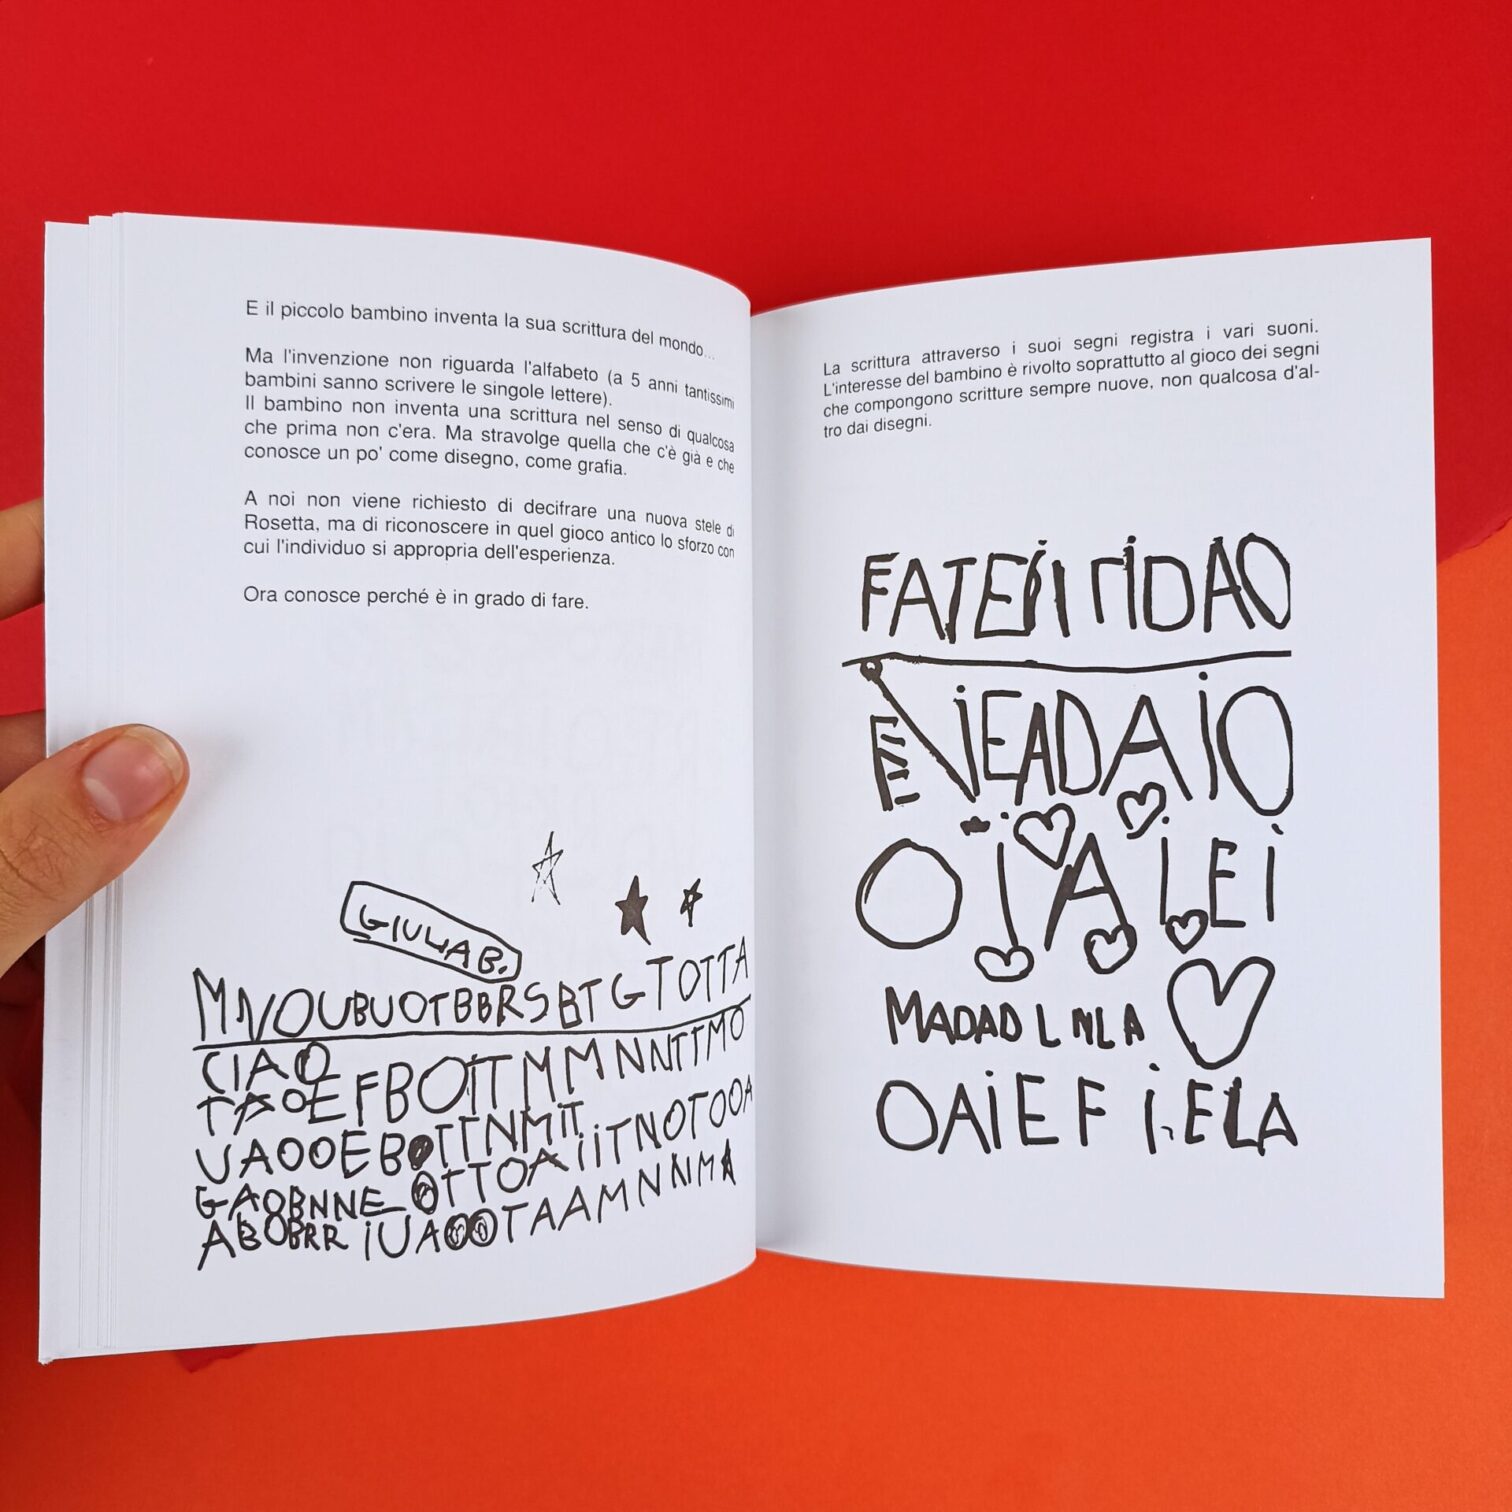 E il piccolo bambino inventa la sua scrittura del mondo...
Ma l'invenzione non riguarda l'alfabeto (a 5 anni tantissimi
bambini sanno scrivere le singole lettere).
Il bambino non inventa una scrittura nel senso di qualcosa
che prima non c'era. Ma stravolge quella che c'è già e che
conosce un po' come disegno, come grafia.
A noi non viene richiesto di decifrare una nuova stele di
Rosetta, ma di riconoscere in quel gioco antico lo sforzo con
cui l'individuo si appropria dell'esperienza.
Ora conosce perché è in grado di fare.
GIULIA B.
MNVOUBUOTBBRSBTGTOTTA
CIAO
TAOEFBOITMMNNTTMO
UAOOEBOTTNMIT
GAOBNNE OTTOAiiTNOTOOA
ABOBRR iUAOOTAAMNNIMA
La scrittura attraverso i suoi segni registra i vari suoni.
L'interesse del bambino è rivolto soprattutto al gioco dei segni
che compongono scritture sempre nuove, non qualcosa d'al-
tro dai disegni.
EViEADAiO
OiAiEi
MADAD L NLA
OAiEF i.ELA